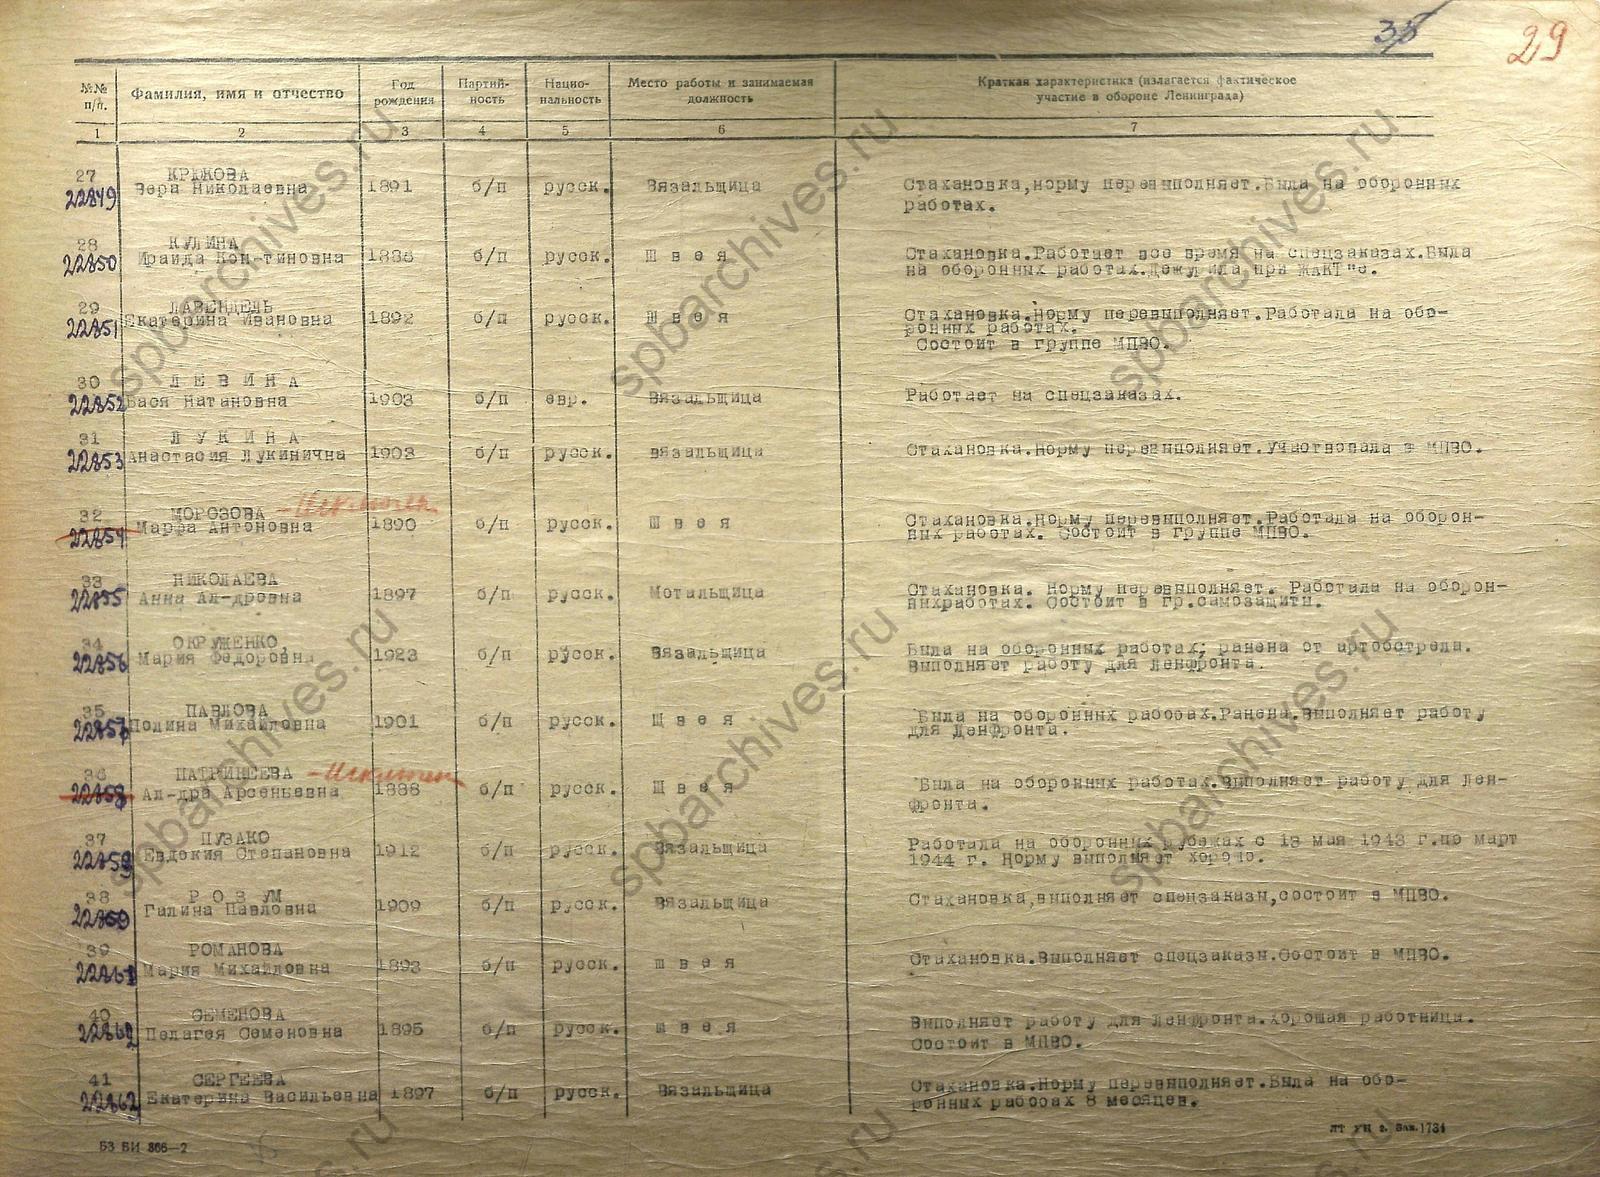 35
29
№№ п/п.
Фамилия, имя и отчество
Год рождения
Партий-ность
Нацио-нальность
Место работы и занимаемая должность
Краткая характеристика (излагается фактическое участие в обороне Ленинграда)
1 2 3 4 5 6 7
27 КРЮКОВА
22849 Вера Николаевна 1891 б/п русск. Вязальщица Стахановка,норму перевыполняет.Была на оборонных
работах.
28 КУЛИНА
22850 Ираида Кон-тиновна 1888 б/п русск. Ш в е я Стахановка.Работает все время на спецзаказах.Была
на оборонных работах.Дежурила при ЖАКТ"е.
29 ЛАВЕНДЕЛЬ
22851 Екатерина Ивановна 1892 б/п русск. Ш в е я Стахановка.Норму перевыполняет.Работала на обо-
ронных работах.
Состоит в группе МПВО.
30 Л Е В И Н А
22852 Бася Натановна 1903 б/п евр. Вязальщица Работает на спецзаказах.
31 Л У К И Н А
22853 Анастасия Лукинична 1903 б/п русск. вязальщица Стахановка.Норму перевыполняет.Участвовала в МПВО.
32 МОРОЗОВА
22854 Марфа Антоновна 1890 б/п русск. Ш в е я Стахановка.Норму перевыполняет.Работала на оборон-
ных работах. Состоит в группе МПВО.
33 НИКОЛАЕВА
22855 Анна Ал-дровна 1897 б/п русск. Мотальщица Стахановка. Норму перевыполняет. Работала на оборон-
ныхработах. Состоит в гр.самозащиты.
34 ОКРУЖЕНКО
22856 Мария Федоровна 1923 б/п русск. Вязальщица Была на оборонных работах; ранена от артобстрела.
Выполняет работу для Ленфронта.
35 ПАВЛОВА
22857 Полина Михайловна 1901 б/п русск. Щ в е я Была на оборонных рабоэах.Ранена.Выполняет работу
для Ленфронта.
36 ПАТРИКЕЕВА
22858 Ал-дра Арсеньевна 1888 б/п русск. Щ в е я Была на оборонных работах.Выполняет работу для Лен-
фронта.
37 ПУЗАКО
22859 Евдокия Степановна 1912 б/п русск. Вязальщица Работала на оборонных рубежах с 13 мая 1943 г.по март
1944 г. Норму выполняет хорошо.
38 Р О З УМ
Галина Павловна 1909 б/п русск. Вязальщица Стахановка,выполняет спецзаказы,состоит в МПВО.
39 РОМАНОВА
22861 Мария Михайловна 1893 б/п русск. ш в е я Стахановка.Выполняет спецзаказы.Состоит в МПВО.
40 СЕМЕНОВА
Пелагея Семеновна 1895 б/п русск. ш в е я Выполняет работу для Ленфронта.Хорошая работница.
Состоит в МПВО.
41 СЕРГЕЕВА
22862 Екатерина Васильевна 1897 б/п русск. Вязальщица Стахановка.Норму перевыполняет.Была на обо-
ронных рабоэах 8 месяцев.
БЗ БИ 366—2
spbarchives.ru